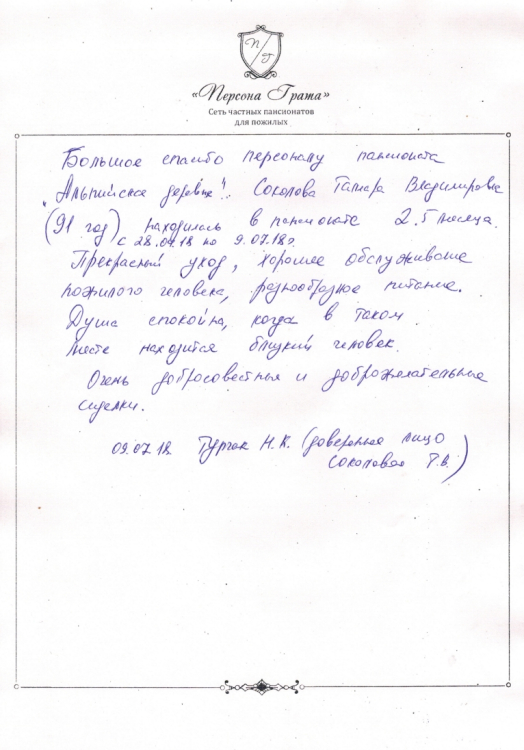 П/Г
«Персона Грата»
Сеть частных пансионатов
для пожилых
Большое спасибо персоналу пансионата
"Альпийская деревня". Соколова Тамара Владимировна
(91 год) находилась в пансионате 2.5 месяца.
с 28.04.18 по 9.07.18г
Прекрасный уход, хорошее обслуживание
пожилого человека, разнообразное питание.
Душа спокойна, когда в таком
месте находится близкий человек.
Очень добросовестные и доброжелательные
сиделки.
09.07.18 Н.К. (доверенное лицо
Соколовой Т.В.)